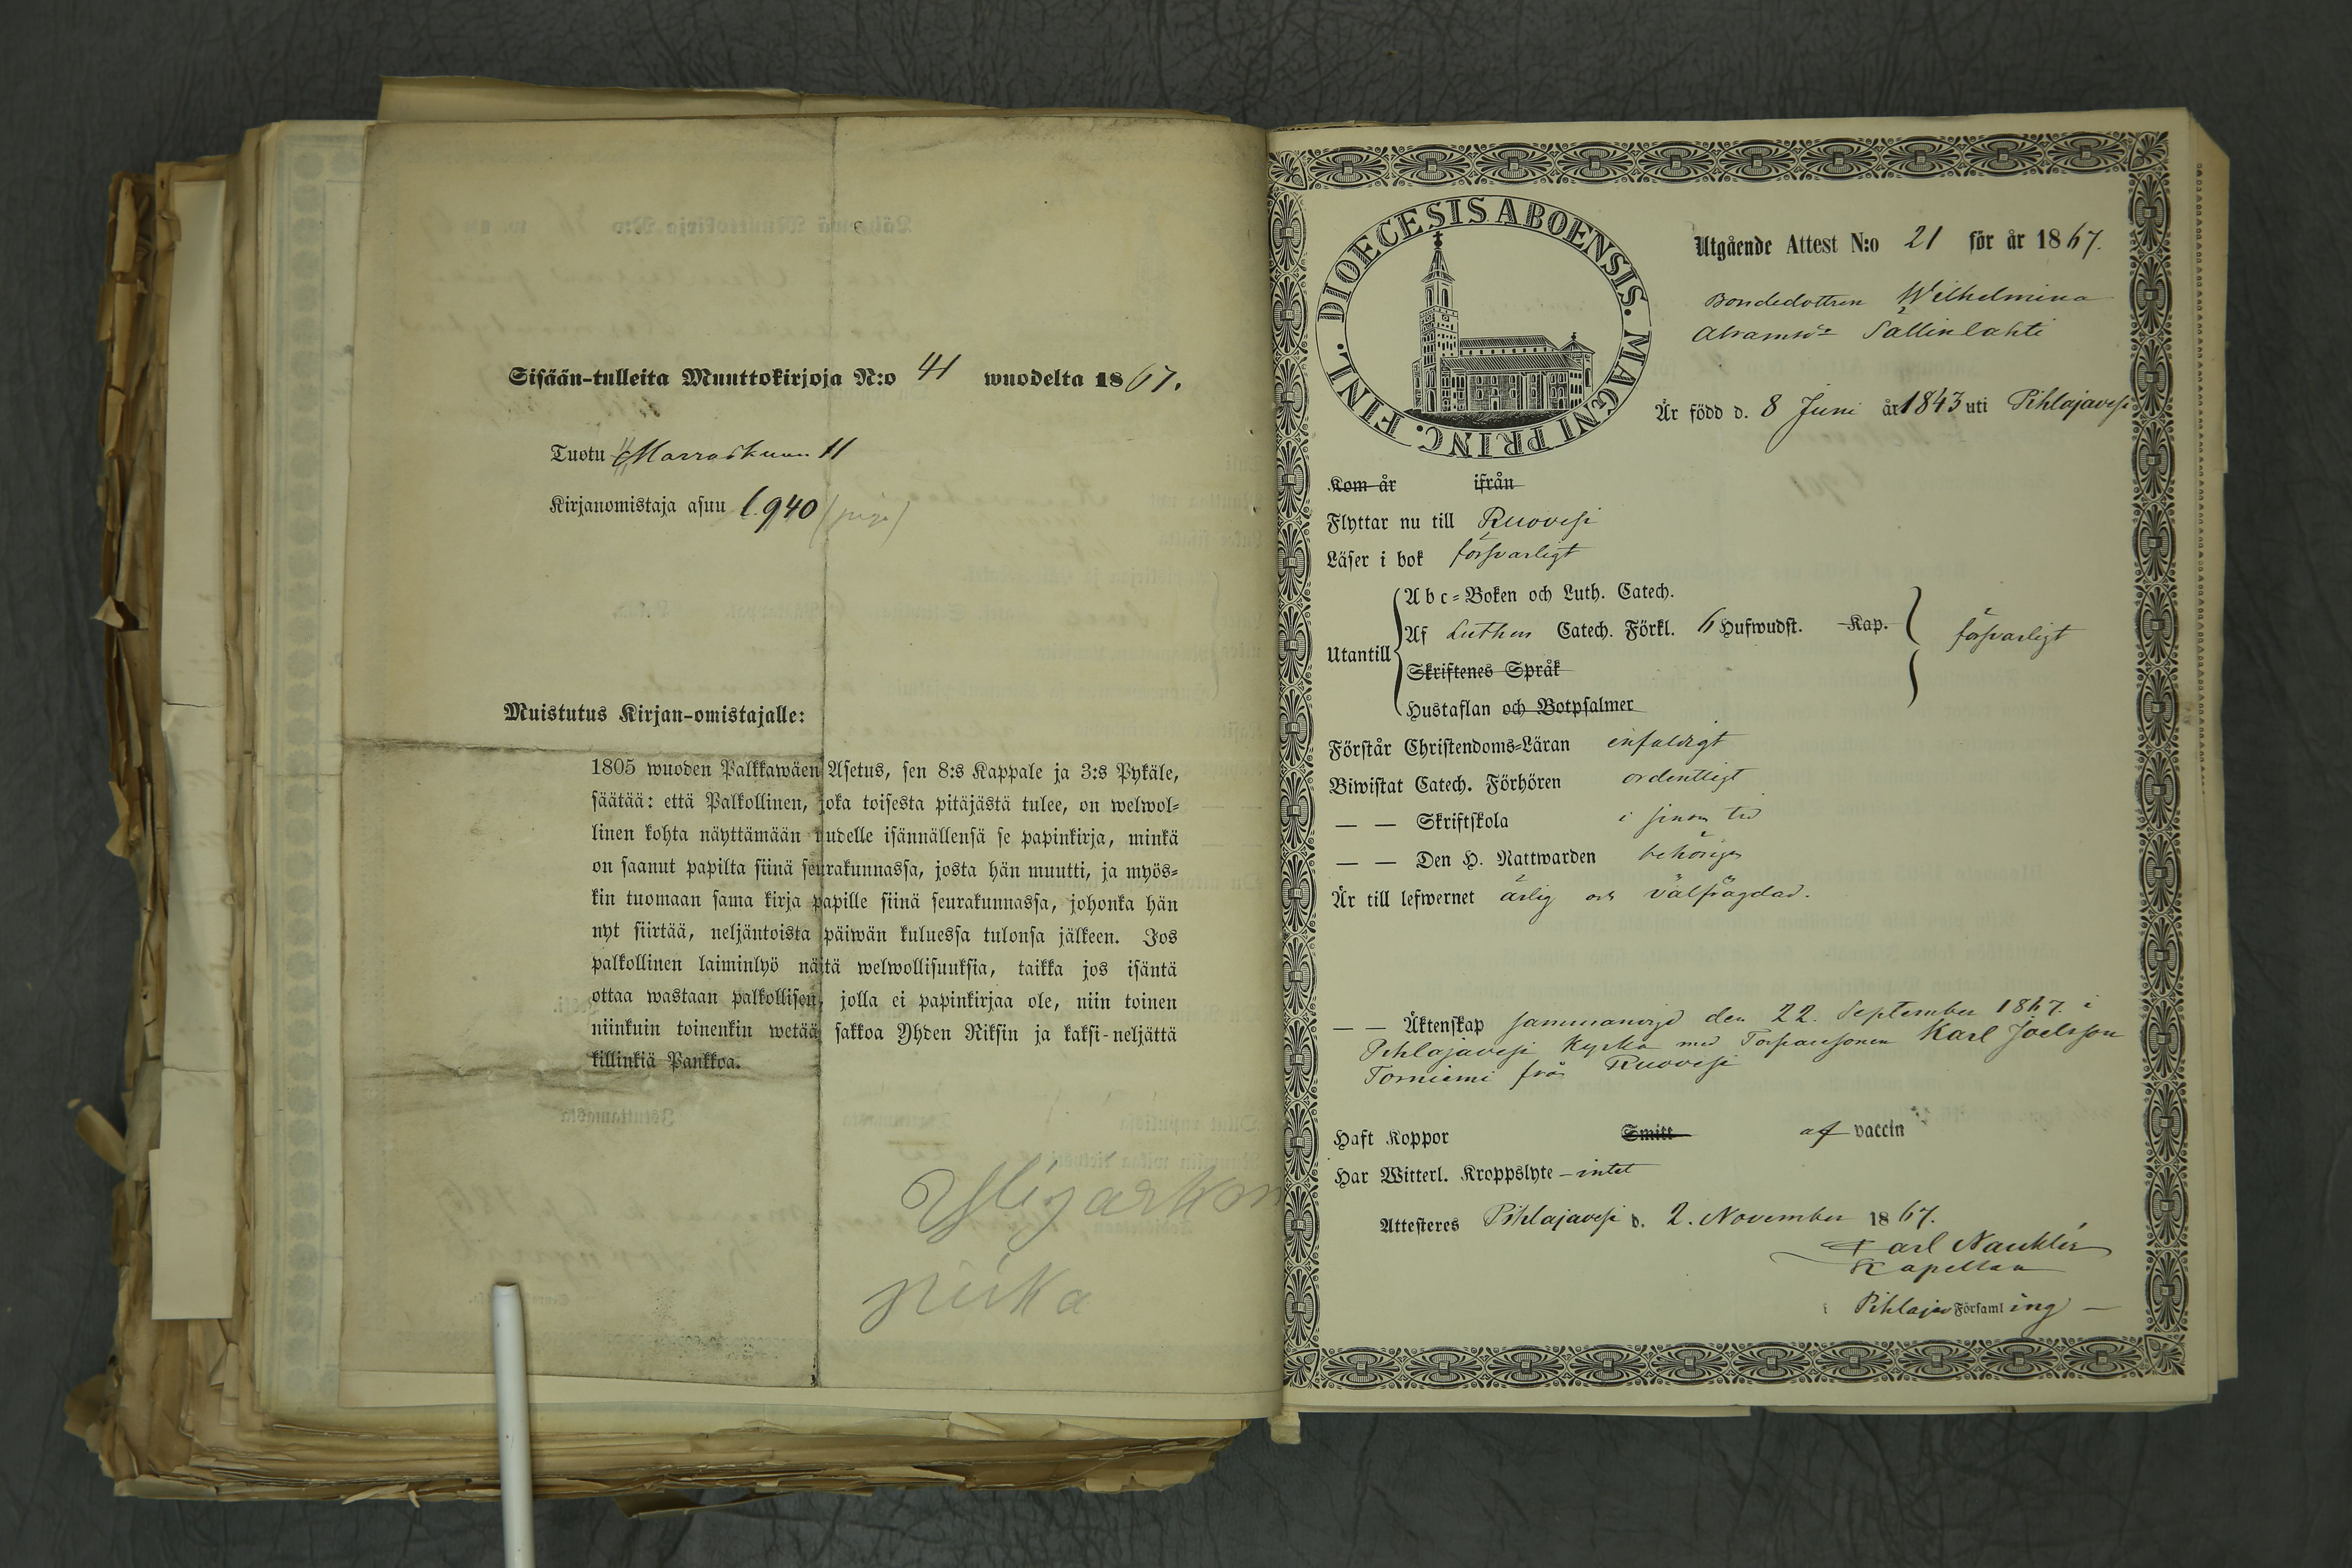 Sisään-tulleita Muuttokirjoja N:o 41 wuodelta 1867.
Tuotu Marraskuun 11
Kirjanomistaja asuu l. 940 (piga)
Muistutus Kirjan-omistajalle:
1805 wuoden Palkkawäen Asetus, sen 8:s Kappale ja 3:s Pykäle,
säätää: että Palkollinen, joka toisesta pitäjästä tulee, on welwol-
linen kohta näyttämään uudelle isännällensä se papinkirja, minkä
on saanut papilta siinä seurakunnassa, josta hän muutti, ja myös-
kin tuomaan sama kirja papille siinä seurakunnassa, johonka hän
nyt siirtää, neljäntoista päiwän kuluessa tulonsa jälkeen. Jos
palkollinen laiminlyö näitä welwollisuuksia, taikka jos isäntä
ottaa wastaan palkollisen, jolla ei papinkirjaa ole, niin toinen
niinkuin toinenkin wetää sakkoa Yhden Riksin ja kaksi-neljättä
killinkiä Pankkoa.
piika
DIOECESIS ABOENSIS. MAGNI PRINC. FINL.
Utgående Attest N:o 21 för år 1867.
Bondedottren Wilhelmina
Abramsdr Sällinlahti
Är född d. 8 Juni år 1843 uti Pihlajavesi
Kom år ifrån
Flyttar nu till Ruovesi
Läser i bok försvarligt
Utantill
Abc-Boken och Luth. Catech.
Af Luthers Catech. Förkl. 6 Hufwudst. Kap. försvarligt
Skriftenes Språk
Hustaflan och Botpsalmer
Förstår Christendoms-Läran enfaldigt
Biwistat Catech. Förhören ordentligt
— — Skriftskola i sinom tid
— — Den H. Nattwarden behörigen
Är till lefwernet ärlig och välfrägdad.
— — Äktenskap sammanvigd den 22. September 1867. i
Pihlajavesi Kyrka med Torparesonen Karl Joelsson
Torniemi från Ruovesi
Haft Koppor Smitt af vaccin
Har Witterl. Kroppslyte – intet
Attesteres Pihlajavesi d. 2. November 1867.
Karl Nauklér
Kapellan
i Pihlajav Församling —